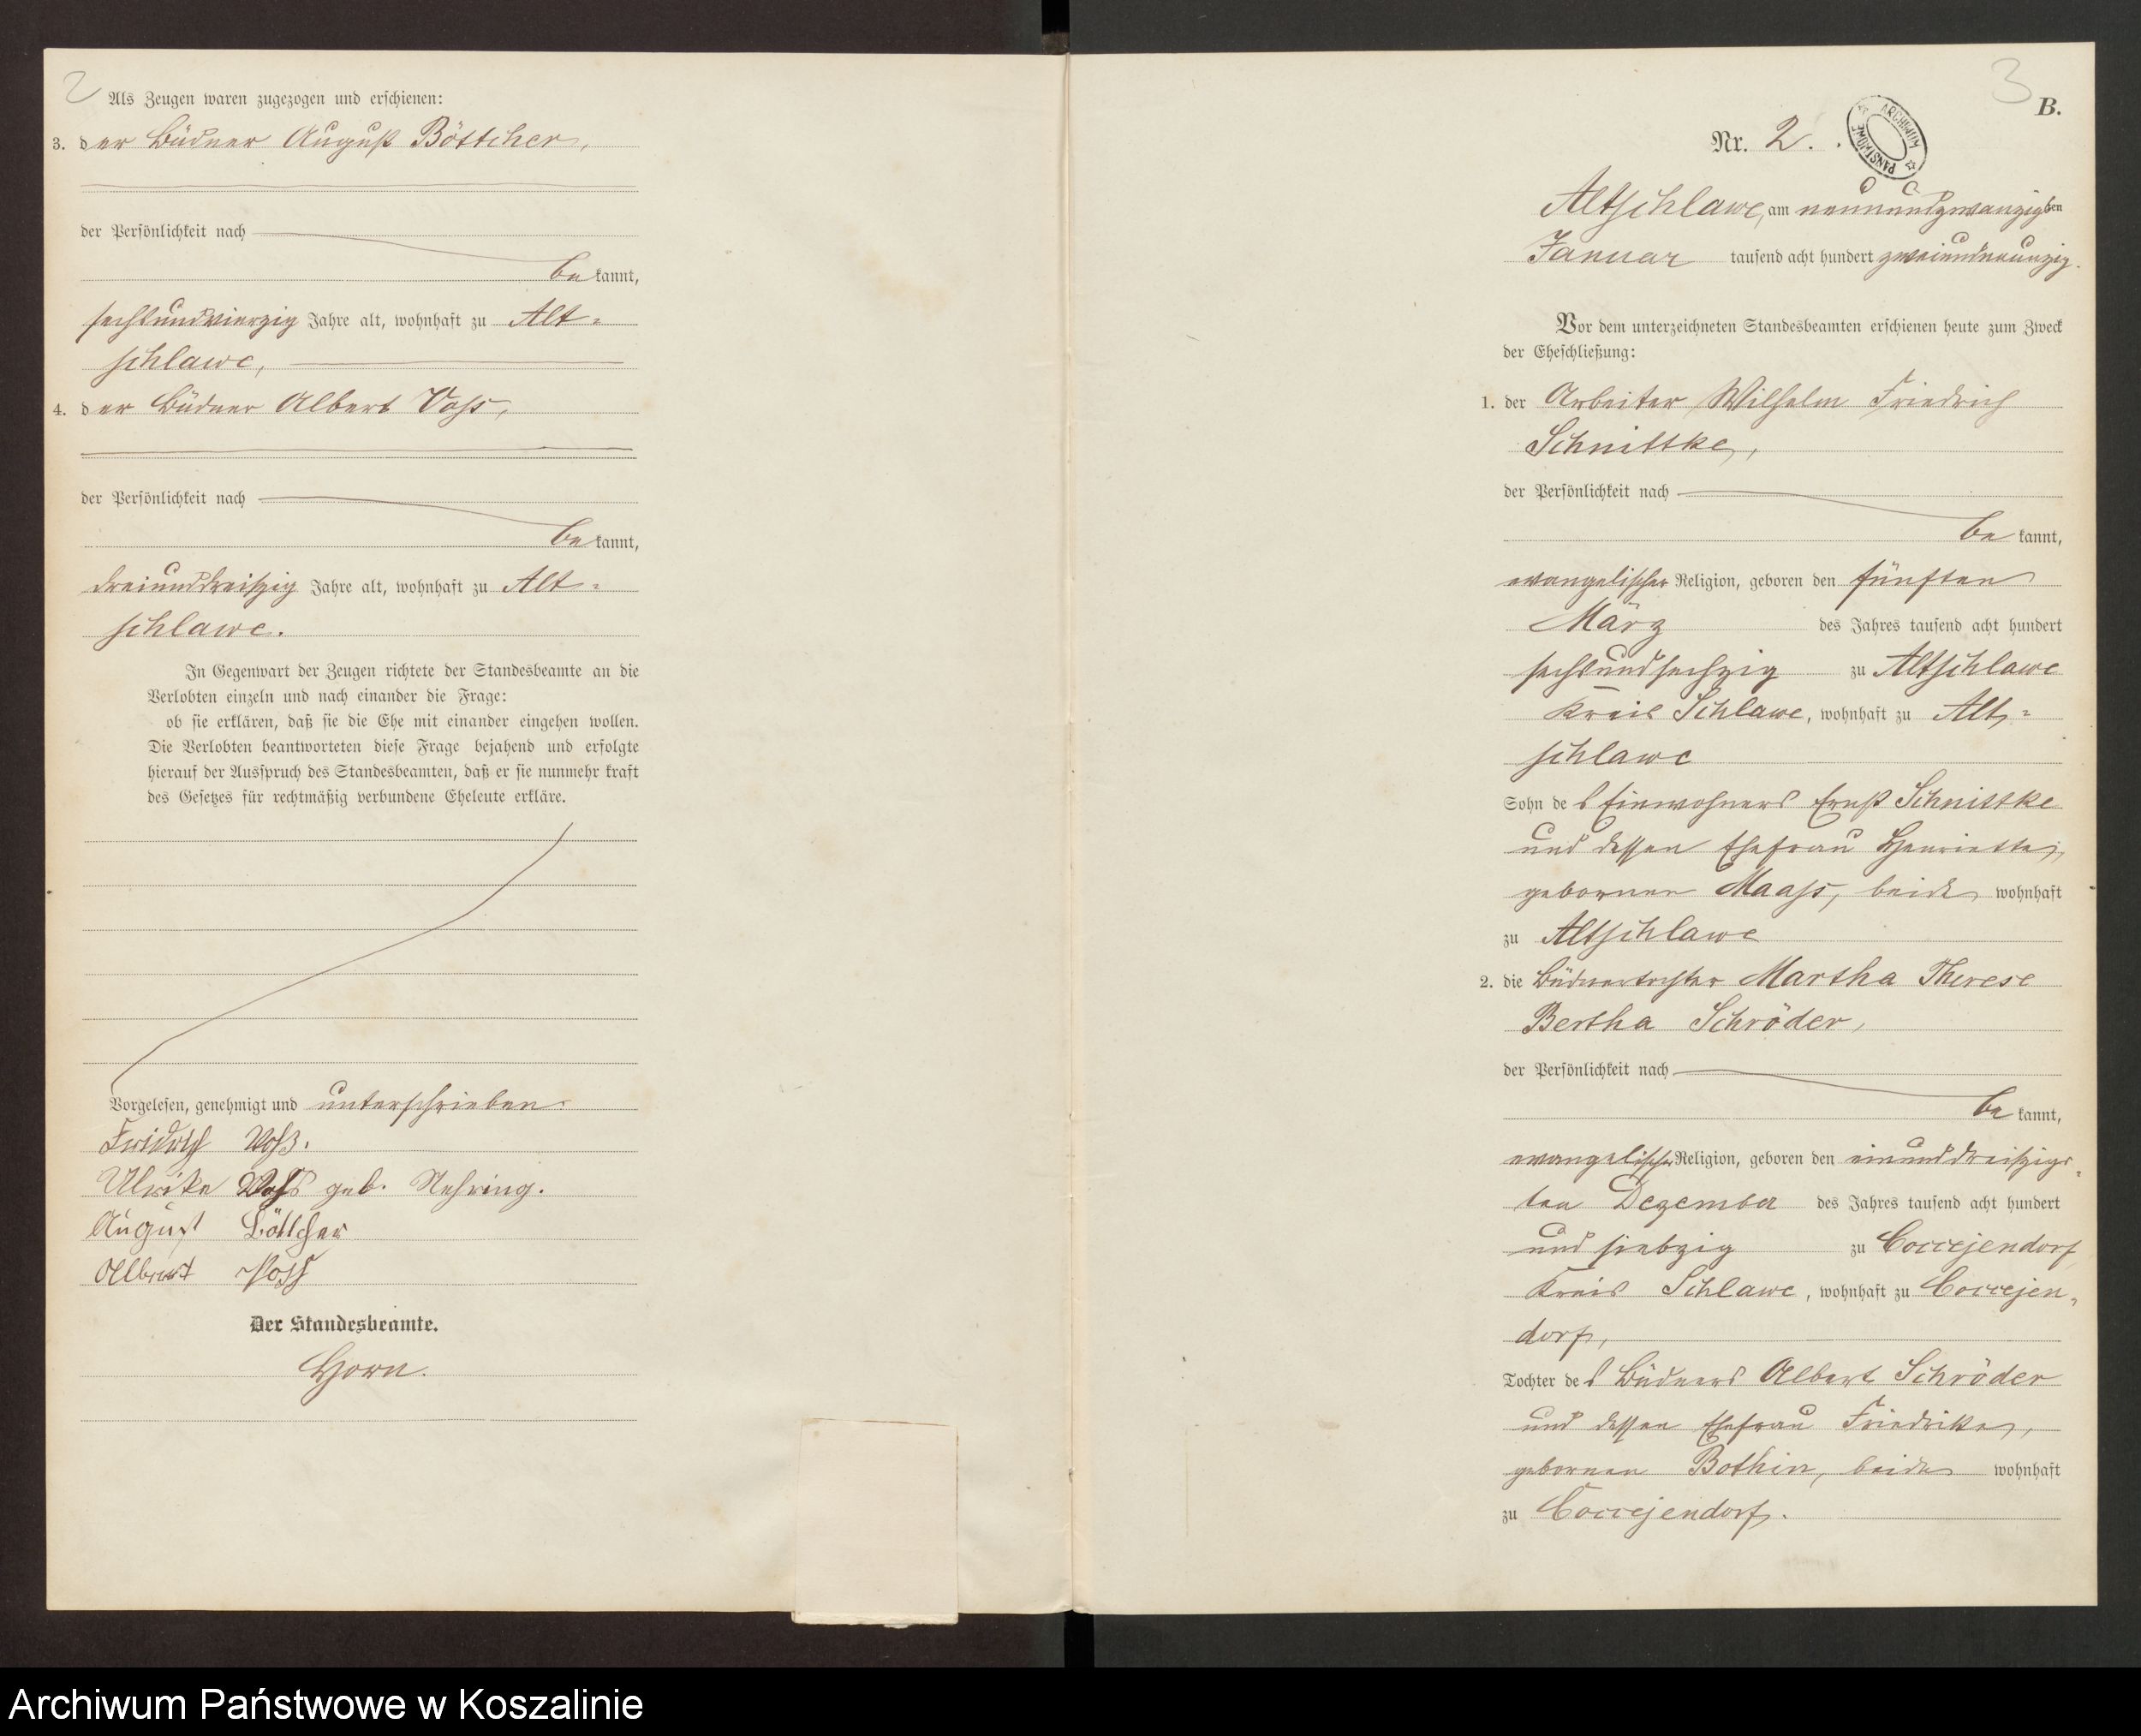 2
Als Zeugen waren zugezogen und erschienen:
3. der Büdner August Böttcher,
der Persönlichkeit nach
be kannt,
sechsundvierzig Jahre alt, wohnhaft zu Alt-
schlawe,
4. der Büdner Albert Voss,
der Persönlichkeit nach
be kannt,
dreiunddreißig Jahre alt, wohnhaft zu Alt-
schlawe.
In Gegenwart der Zeugen richtete der Standesbeamte an die
Verlobten einzeln und nach einander die Frage:
ob sie erklären, daß sie die Ehe mit einander eingehen wollen.
Die Verlobten beantworteten diese Frage bejahend und erfolgte
hierauf der Ausspruch des Standesbeamten, daß er sie nunmehr kraft
des Gesetzes für rechtmäßig verbundene Eheleute erkläre.
Vorgelesen, genehmigt und unterschrieben.
Friedrich Voß.
Ulrike Voß geb. Nehring.
August Böttcher
Albert Voss
Der Standesbeamte.
Horn.
3
B.
ARCHIWUM PAŃSTWOWE
Nr. 2.
Altschlawe, am neunundzwanzigsten
Januar tausend acht hundert zweiundneunzig.
Vor dem unterzeichneten Standesbeamten erschienen heute zum Zweck
der Eheschließung:
1. der Arbeiter Wilhelm Friedrich
Schnittke,
der Persönlichkeit nach
be kannt,
evangelischer Religion, geboren den fünften
März des Jahres tausend acht hundert
sechsundsechzig zu Altschlawe
Kreis Schlawe, wohnhaft zu Alt-
schlawe
Sohn des Einwohners Ernst Schnittke
und dessen Ehefrau Henriette,
gebornen Maass, beide wohnhaft
zu Altschlawe
2. die Büdnertochter Martha Therese
Bertha Schröder,
der Persönlichkeit nach
be kannt,
evangelischer Religion, geboren den einunddreißigs-
ten Dezember des Jahres tausend acht hundert
und siebzig zu Coccejendorf
Kreis Schlawe, wohnhaft zu Coccejen-
dorf,
Tochter des Büdners Albert Schröder
und dessen Ehefrau Friedrike,
gebornen Bothin, beide wohnhaft
zu Coccejendorf.
Archiwum Państwowe w Koszalinie